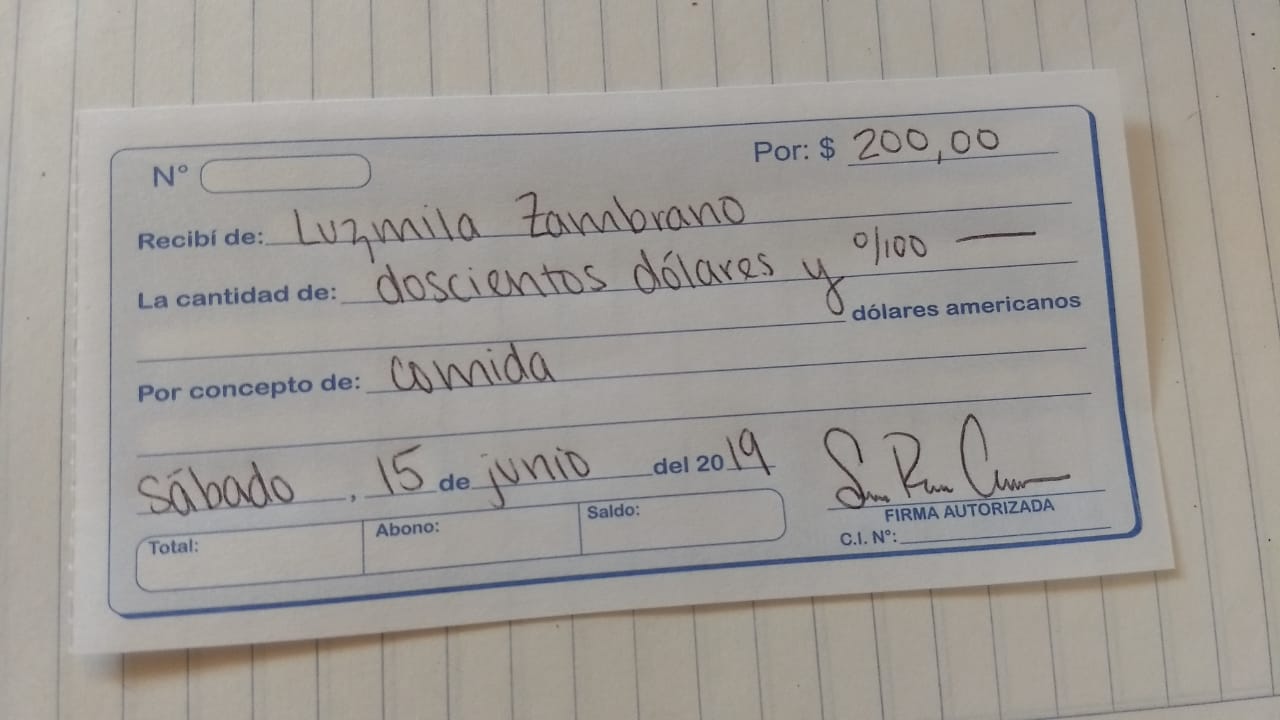 Nº
Por: $ 200,00
Recibí de: Luzmila Zambrano
La cantidad de: doscientos dólares y 0/100 —
dólares americanos
Por concepto de: comida
sábado, 15 de junio del 2019
Total: Abono: Saldo:
FIRMA AUTORIZADA
C.I. Nº: